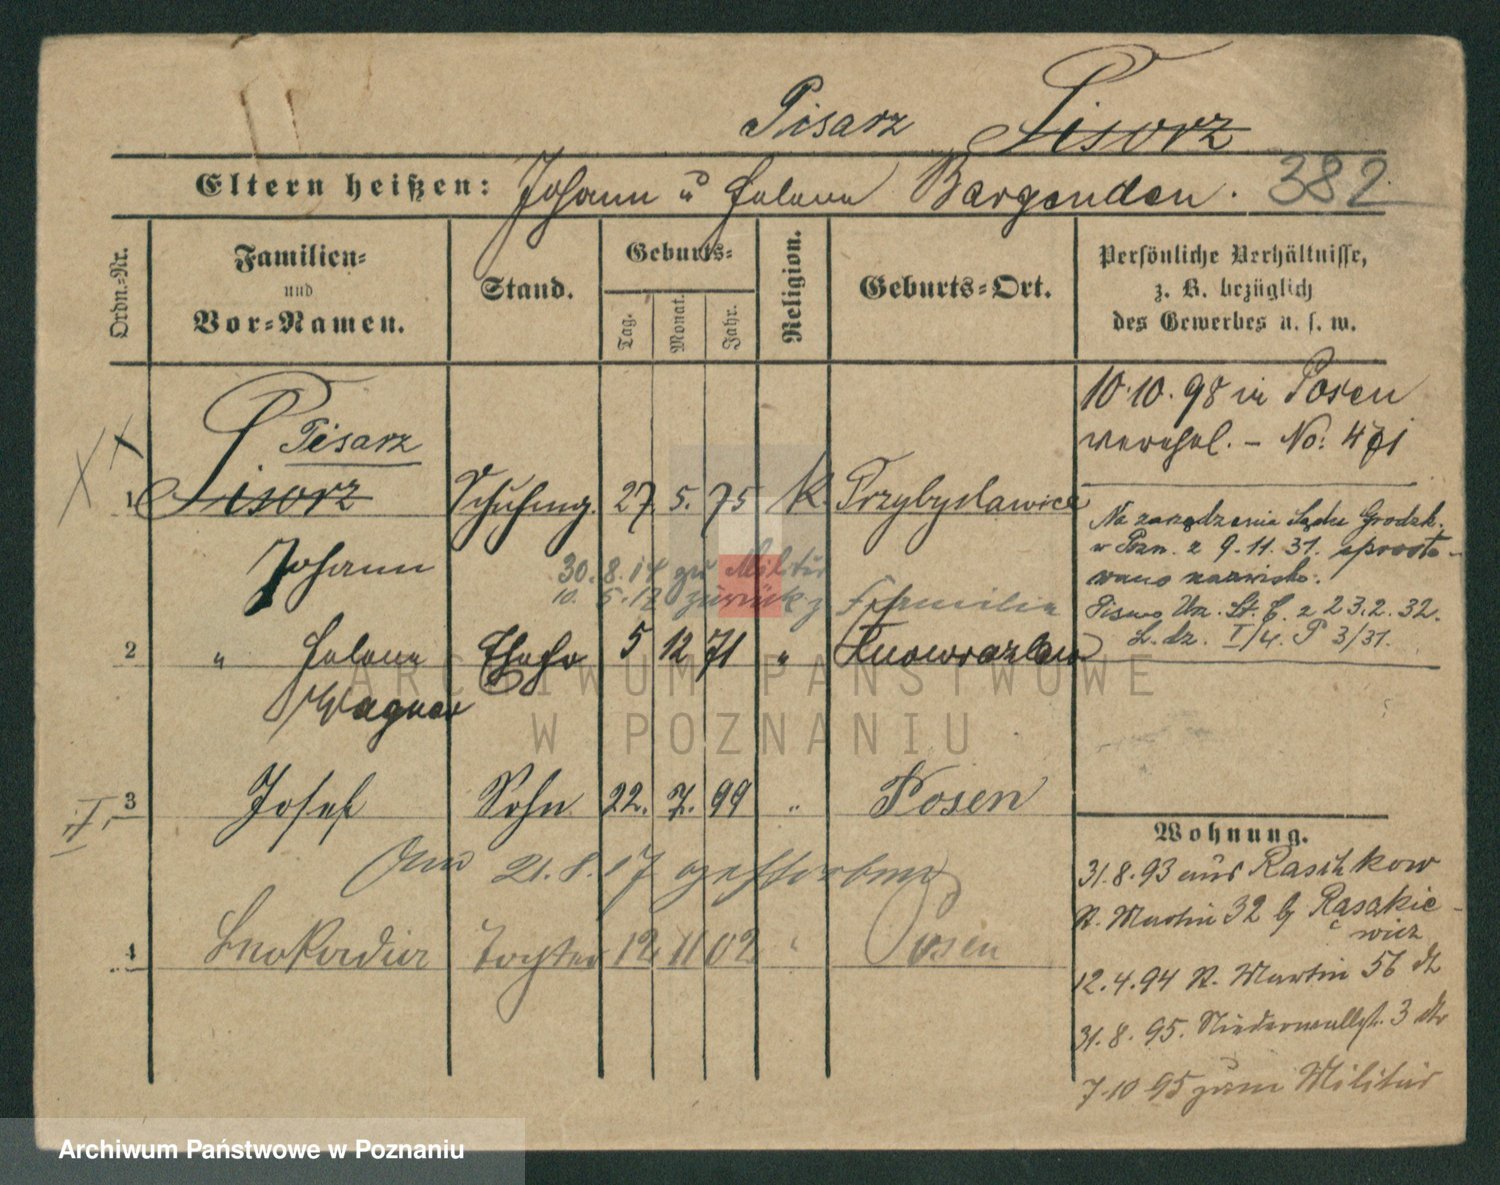 Pisarz Pisorz
Eltern heißen: Johann u Helene Bergenden. 382
Ordn.-Nr.
Familien-
und
Vor-Namen.
Stand.
Geburts-
Tag.
Monat.
Jahr.
Religion.
Geburts-Ort.
Persönliche Verhältnisse,
z. B. bezüglich
des Gewerbes u. s. w.
10.10.98 in Posen
verehel. - No: 471
Pisarz
1 Pisorz Schuhmg. 27. 5. 75 K. Przybyslawice
Johann
30.8.14 zu Militär
10. 5.17 zurück z Familie
2 " Helene Ehefr 5 12 71 " Inowrazlaw
Wagner
3 Josef Sohn 22. 7. 99 " Posen
Am 21.8.17 gestorben
4 Leokadia Tochter 12. 11 02 " Posen
Na zarządzenie Sądu Grodzk.
w Pozn. z 9.11.31. sprosto-
wano nazwisko.
Pismo Urz. St. C. z 23.2.32.
L. dz. I/4. P 3/31.
Wohnung.
31.8.93 aus Raschkow
St. Martin 32 b Rąsakie-
wicz
12.4.94 St. Martin 56
31.8.95. Niederwallstr. 3
7.10 95 zum Militär
ARCHIWUM PAŃSTWOWE
W POZNANIU
Archiwum Państwowe w Poznaniu